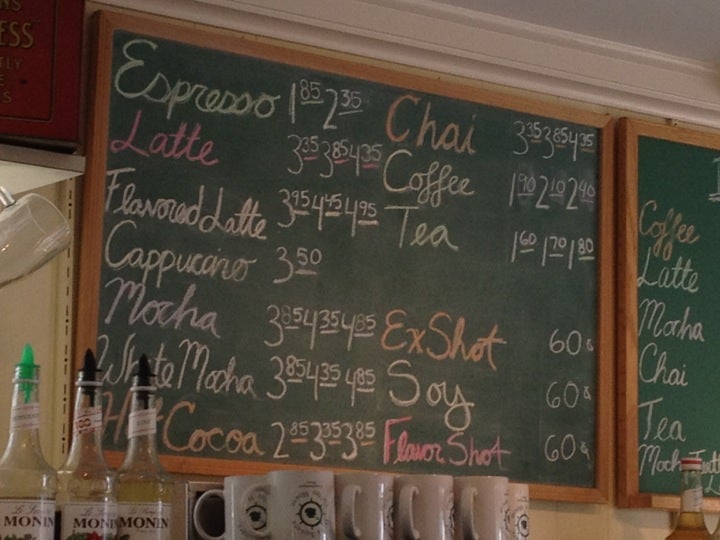 ESS
Espresso 1.85 2.35
Latte 3.35 3.85 4.35
Flavored Latte 3.95 4.45 4.95
Cappuccino 3.50
Mocha 3.85 4.35 4.85
White Mocha 3.85 4.35 4.85
Hot Cocoa 2.85 3.35 3.85
Chai 3.35 3.85 4.35
Coffee 1.90 2.10 2.40
Tea 1.60 1.70 1.80
Ex Shot 60¢
Soy 60¢
Flavor Shot 60¢
Coffee
Latte
Mocha
Chai
Tea
Mocha
MONIN
MONIN
MONIN